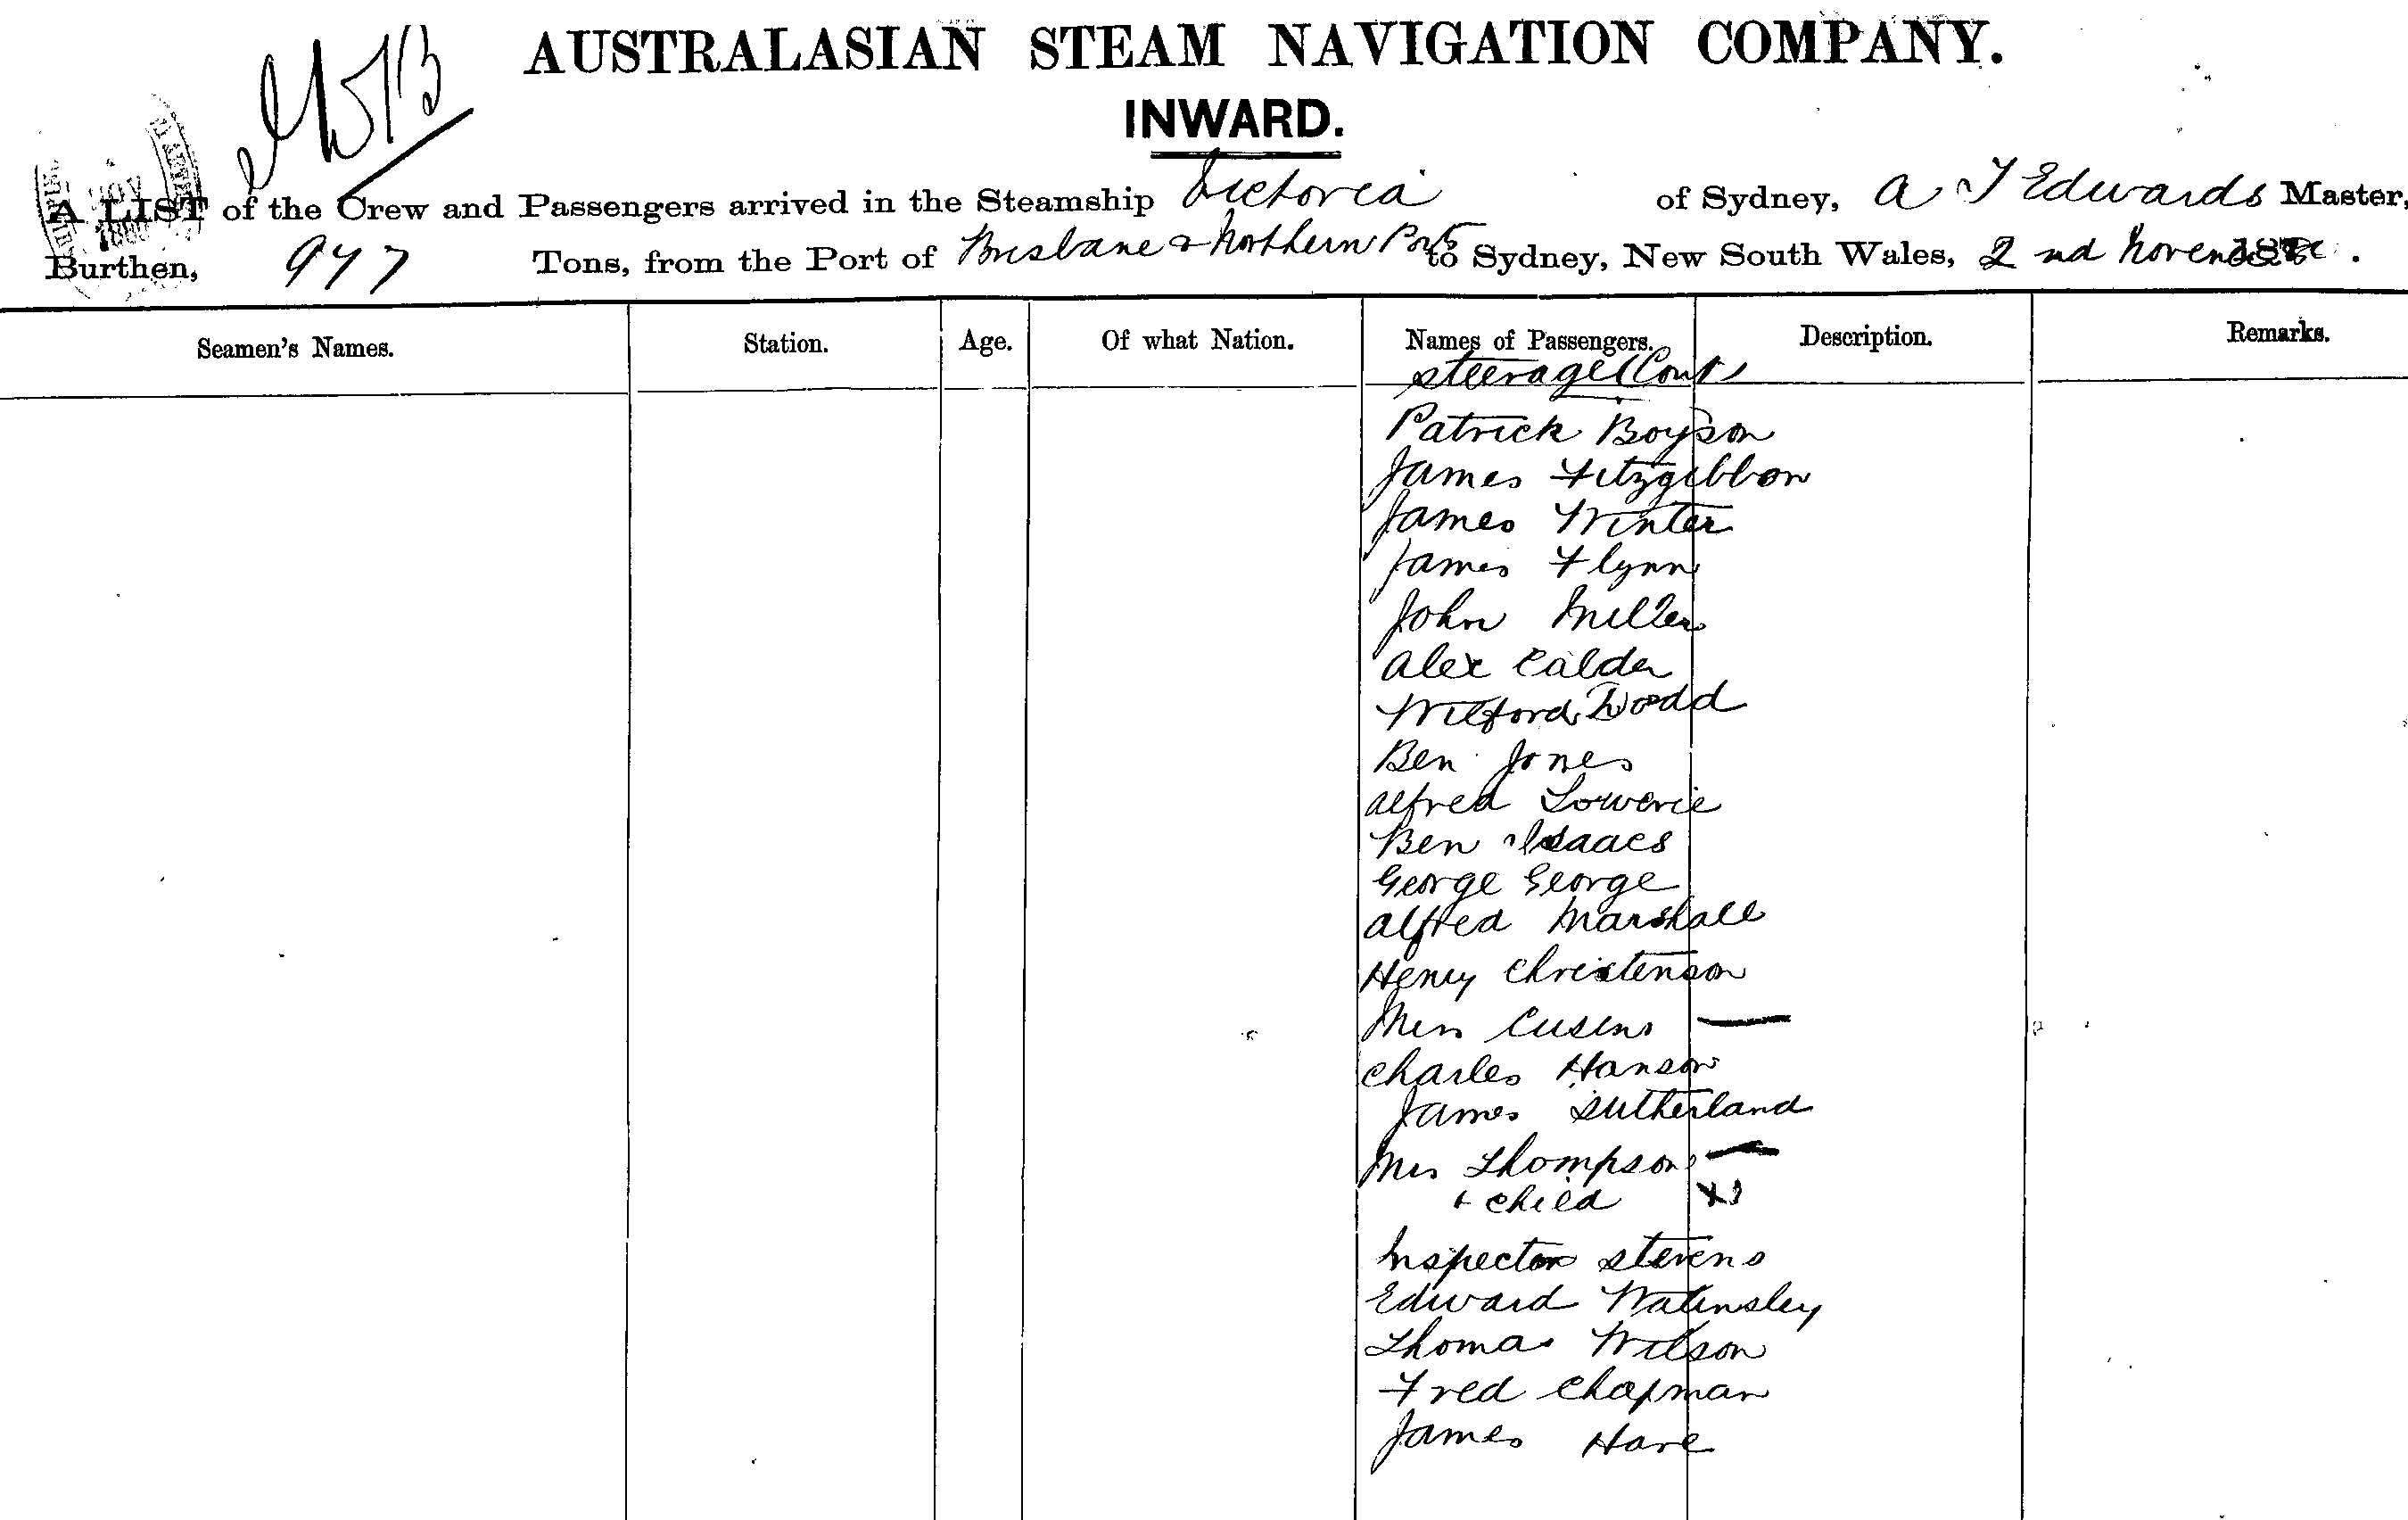 AUSTRALASIAN STEAM NAVIGATION COMPANY.
INWARD.
A LIST of the Crew and Passengers arrived in the Steamship Victoria of Sydney, A J Edwards Master,
Burthen, 977 Tons, from the Port of Brisbane & Northern Ports to Sydney, New South Wales, 2nd November
Seamen's Names. Station. Age. Of what Nation. Names of Passengers. Description. Remarks.
Steerage (Cont
Patrick Boyson
James Fitzgibbon
James Winter
James Flynn
John Miller
Alex Calder
Wilford Dodd
Ben Jones
Alfred Lowerie
Ben Isaacs
George George
Alfred Marshall
Henry Christenson
Cusens
Charles Hanson
James Sutherland
Mrs Thompson
+ child
Inspector Stevens
Edward Walmsley
Thomas Wilson
Fred Chapman
James Hare